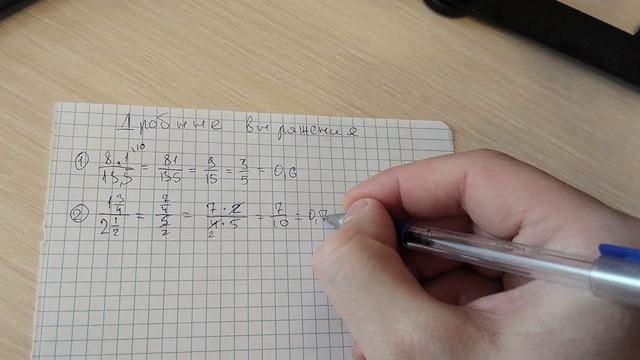 Дробные выражения
① 8,1/13,5 ·10 = 81/135 = 9/15 = 3/5 = 0,6
② 1 3/4 / 2 1/2 = 7/4 / 5/2 = 7·2/4·5 2 = 7/10 = 0,7